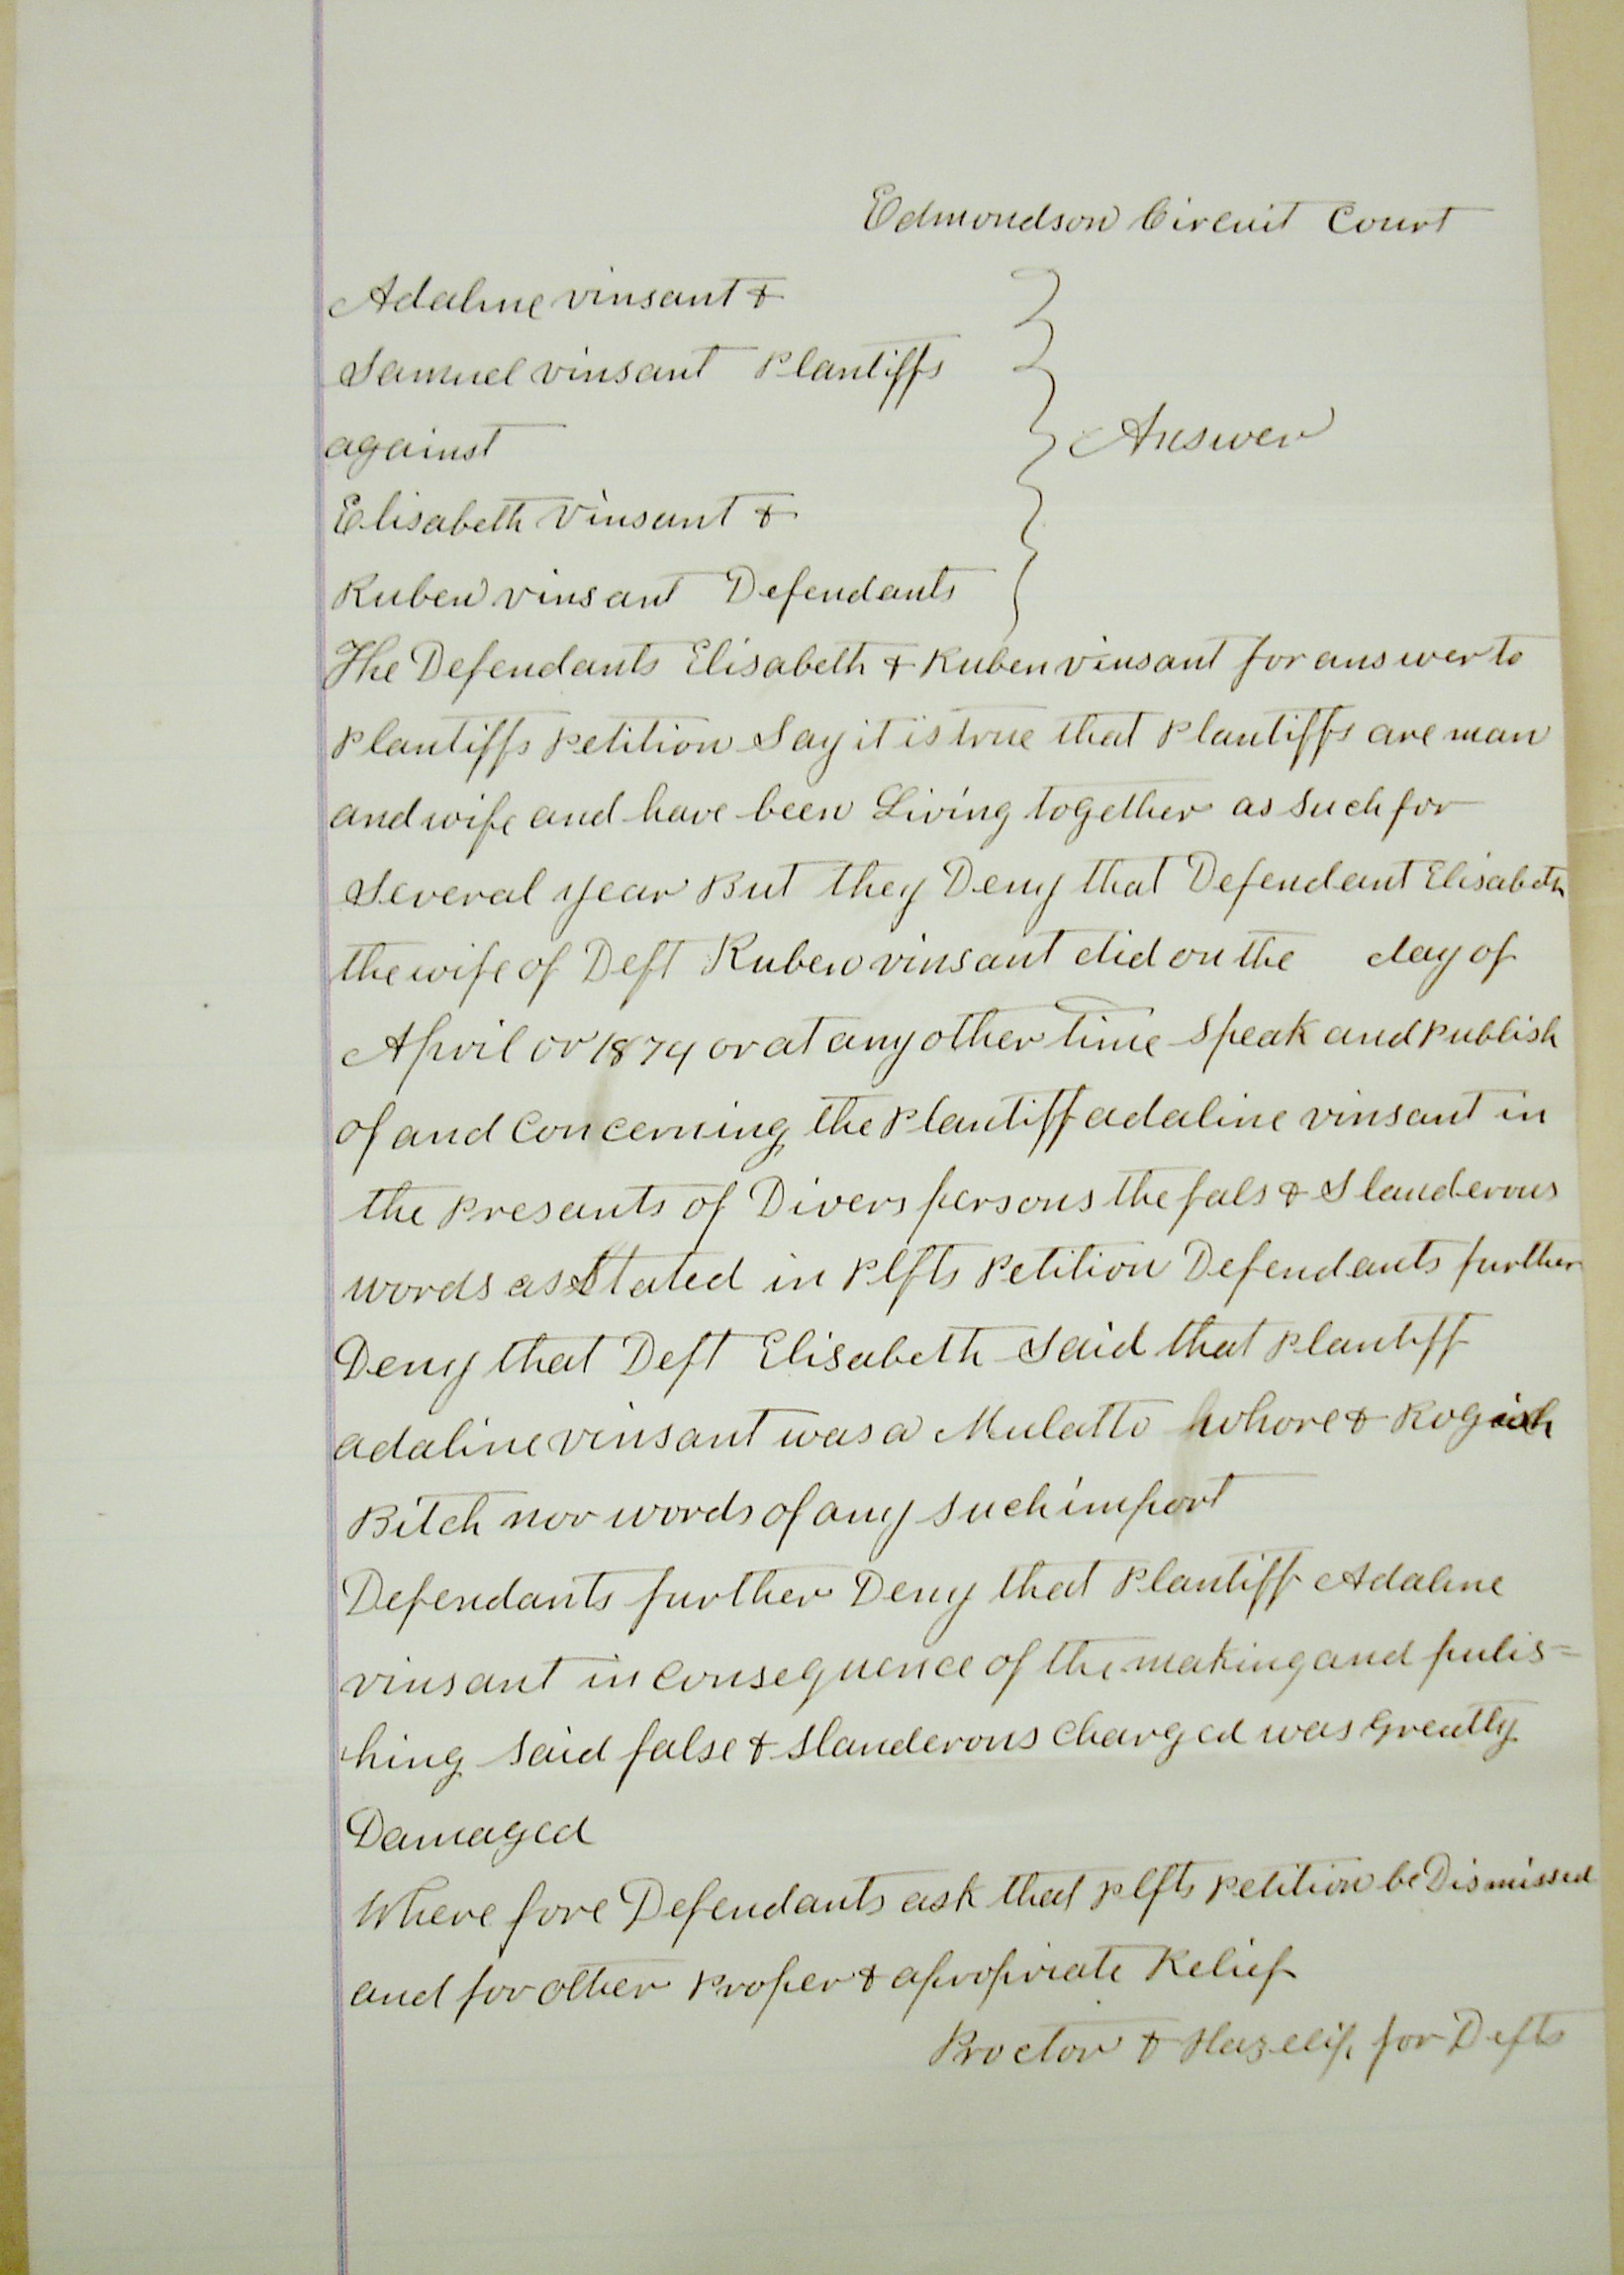 Edmondson Circuit Court
Adaline vinsant &
Samuel vinsant Plantiffs
against
Answer
Elisabeth Vinsant &
Ruben vinsant Defendants
The Defendants Elisabeth & Ruben vinsant for answer to
Plantiffs Petition Say it is true that Plantiffs are man
and wife and have been Living together as such for
several year But they Deny that Defendant Elisabeth
the wife of Deft Ruben vinsant did on the day of
April or 1874 or at any other time speak and publish
of and concerning the Plantiff adaline vinsant in
the presants of Divers persons the fals & Slanderous
words as Stated in Plfts Petition Defendants further
Deny that Deft Elisabeth Said that Plantiff
adaline vinsant was a Mulatto hohore & Rogish
Bitch nor words of any such import
Defendants further Deny that Plantiff Adaline
vinsant in consequence of the making and pulis=
hing said false & slanderous charged was Greatly
Damaged
Where fore Defendants ask that plfts petition be Dismissed
and for other proper & apropriate Relief
Proctor & Hazelip for Defts